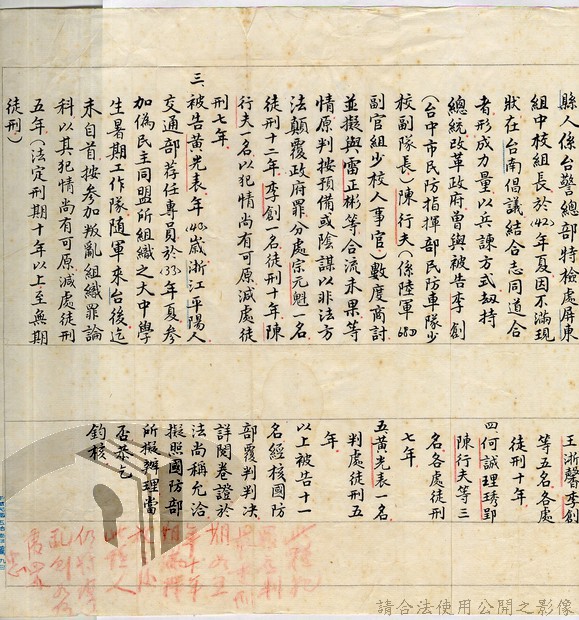 縣人係台警總部特檢處屏東
組中校組長於(42)年夏因不滿現
狀在台南倡議結合志同道合
者形成力量以兵諫方式刼持
總統改革政府曾與被告李創
(台中市民防指揮部民防車隊少
校副隊長)陳行夫(係陸軍
副官組少校人事官)數度商討
並擬與雷正彬等合流未果等
情原判按預備或陰謀以非法方
法顛覆政府罪分處宗元魁一名
徒刑十二年李創一名徒刑十年陳
行夫一名以犯情尚有可原減處徒
刑七年
三、被告黃光表年(40)歲浙江平陽人
交通部荐任專員於(33)年夏參
加偽民主同盟所組織之大中學
生暑期工作隊隨軍來台後迄
未自首按參加叛亂組織罪論
科以其犯情尚有可原減處徒刑
五年(法定刑期十年以上至無期
徒刑)
王浙馨李創
等五名各處
徒刑十年
四、何誠理琇郢
陳行夫等三
名各處徒刑
七年
五、黃光表一名
判處徒刑五
年
以上被告十一
名經核國防
部覆判判决
詳閱卷證於
法尚稱允洽
擬照國防部
所擬辦理當
否恭乞
鈞核
請合法使用公開之影像